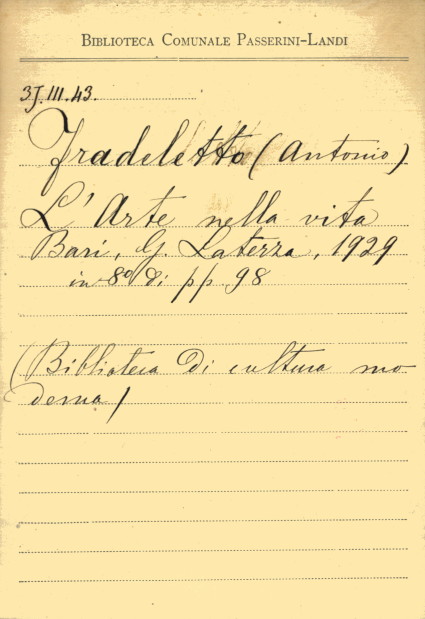 BIBLIOTECA COMUNALE PASSERINI-LANDI
3J.III.43.
Fradeletto (Antonio)
L'Arte nella vita
Bari, G. Laterza, 1929
in 8° di pp. 98
(Biblioteca di cultura mo
derna)